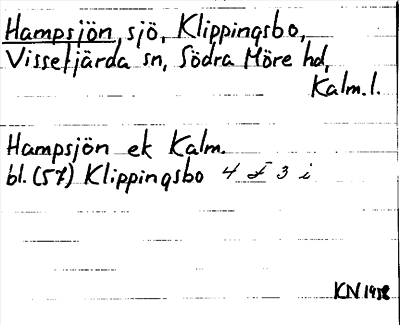 Hampsjön, sjö, Klippingsbo,
Vissefjärda sn, Södra Möre hd,
Kalm. l.
Hampsjön ek Kalm.
bl. (57) Klippingsbo 4 F 3 i
KN 1958